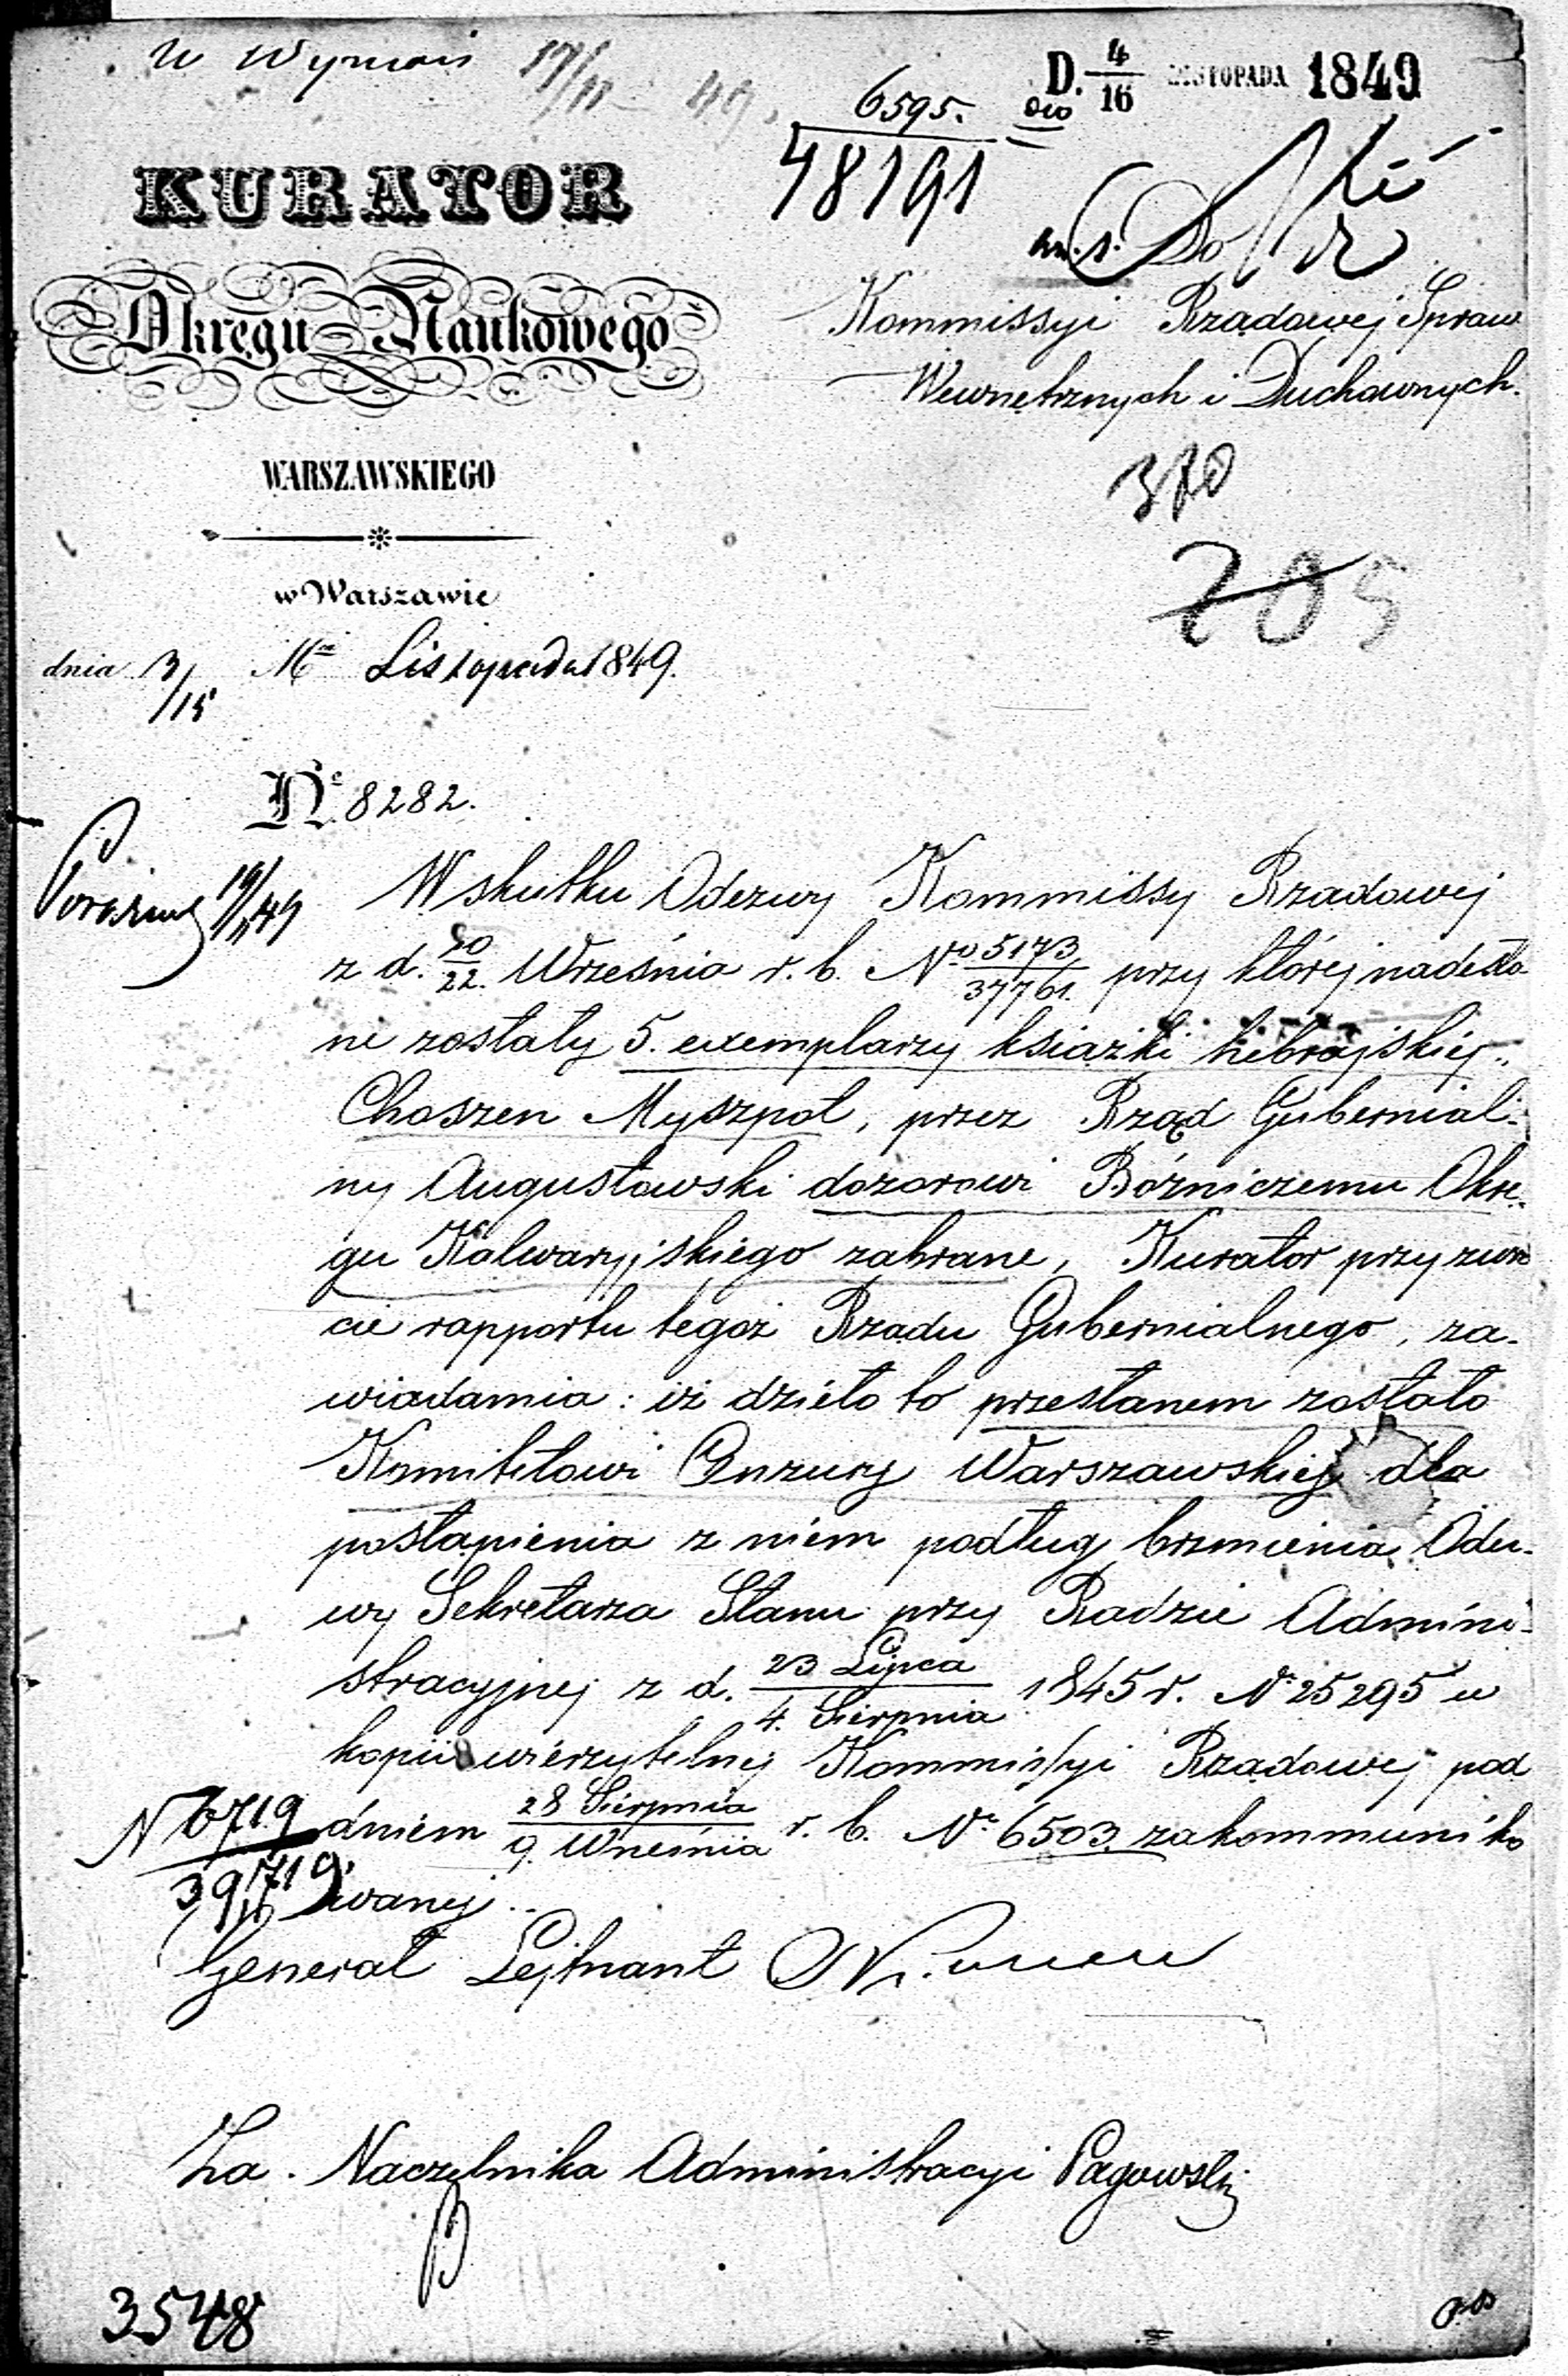 w Wymois 17/11 49.
D. 4/16 LISTOPADA 1849
6595.
48191
KURATOR
Okręgu Naukowego
WARSZAWSKIEGO
w Warszawie
dnia 3/15 Mca Listopada 1849.
Nr 8282.
Do
Kommissyi Rządowej Spraw
Wewnętrznych i Duchownych.
370
205
19/11 49
W skutku Odezwy Kommissy Rządowej
z d. 10/22. Września r. b. No 5173/37761. przy której nadesła
ne zostały 5. exemplarzy książki hebrajskiej
Choszen Myszpot, przez Rząd Gubernial-
ny Augustowski dozorowi Bóżniczemu Okrę-
gu Kalwaryjskiego zabrane, Kurator przy zwro
cie rapportu tegoż Rządu Gubernialnego, za-
wiadamia: iż dzieło to przesłanem zostało
Komitetowi Cenzury Warszawskiej dla
postąpienia z niem podług brzmienia Odez-
wy Sekretarza Stanu przy Radzie Admini-
stracyjnej z d. 23 Lipca/4. Sierpnia 1845 r. Nr 25295 w
kopii wierzytelnej Kommissyi Rządowej pod
dniem 28 Sierpnia/9. Września r. b. Nr 6503. zakommuniko
wanej.
N 6719/39719
Generał Lejtnant
Za. Naczelnika Administracyi Pagowski
3548